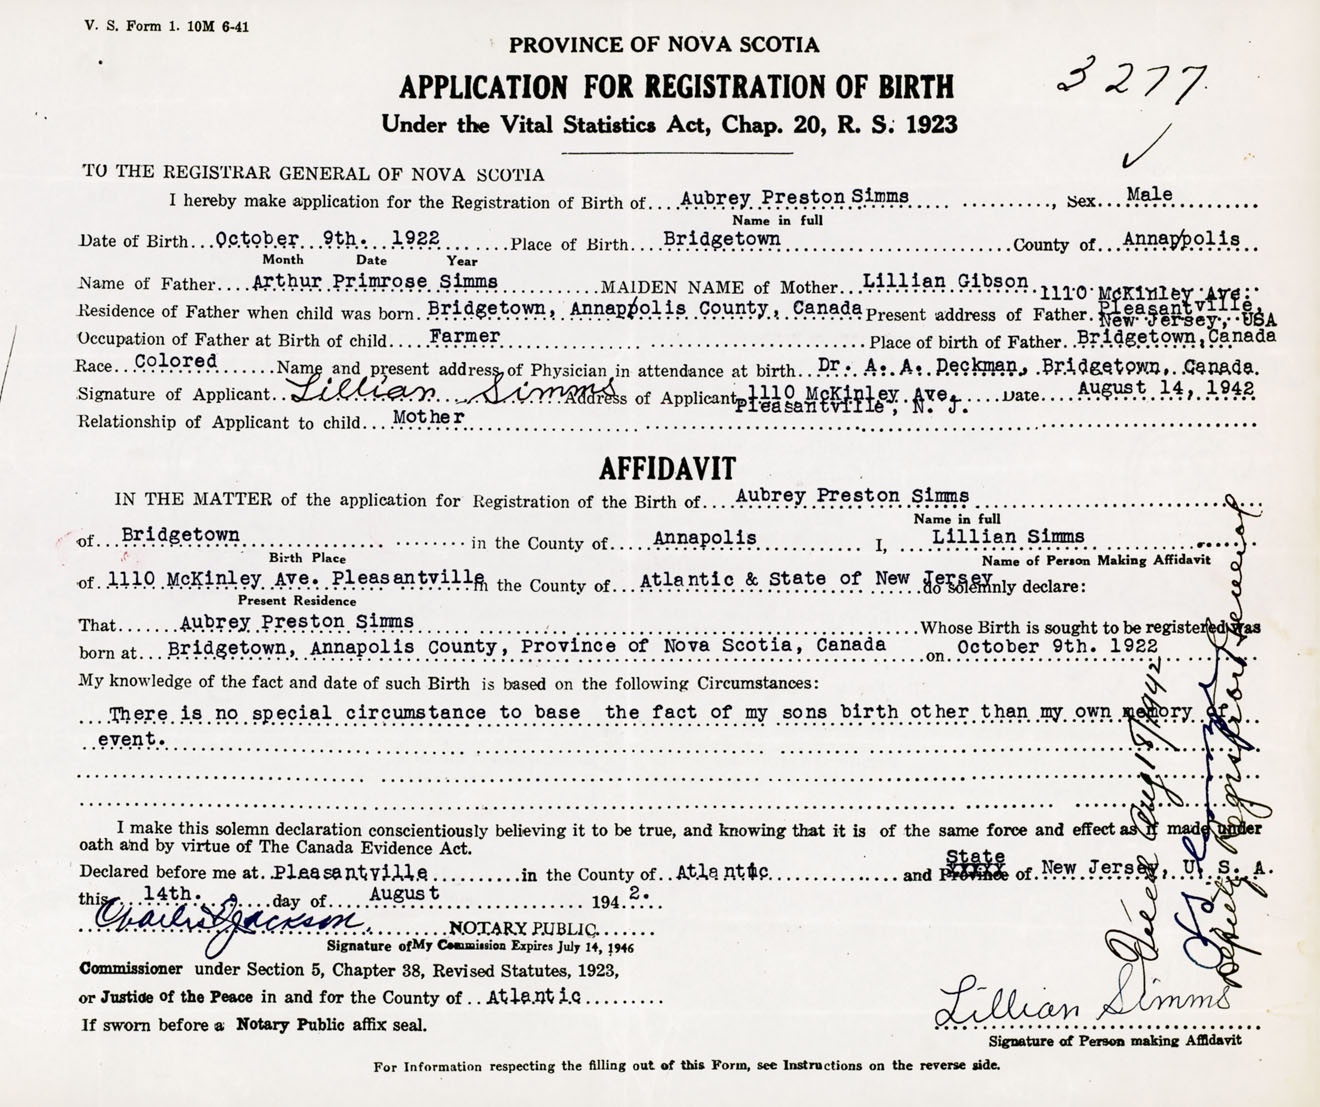 V. S. Form 1. 10M 6-41
PROVINCE OF NOVA SCOTIA
3277
APPLICATION FOR REGISTRATION OF BIRTH
Under the Vital Statistics Act, Chap. 20, R. S. 1923
TO THE REGISTRAR GENERAL OF NOVA SCOTIA
I hereby make application for the Registration of Birth of....Aubrey Preston Simms.... .........., Sex...Male..........
Name in full
Date of Birth...October 9th. 1922.......Place of Birth...Bridgetown.......................County of...Annappolis..
Month Date Year
Name of Father....Arthur Primrose Simms..........MAIDEN NAME of Mother...Lillian Gibson 1110 McKinley Ave.
Residence of Father when child was born. Bridgetown, Annappolis County, Canada Present address of Father. Pleasantville, New Jersey, USA
Occupation of Father at Birth of child....Farmer..................................Place of birth of Father. Bridgetown, Canada
Race..Colored......Name and present address of Physician in attendance at birth...Dr. A. A. Deckman, Bridgetown, Canada.
Signature of Applicant..Lillian Simms Address of Applicant 1110 McKinley Ave. Pleasantville, N. J. .....Date....August 14, 1942
Relationship of Applicant to child...Mother..........
AFFIDAVIT
IN THE MATTER of the application for Registration of the Birth of....Aubrey Preston Simms..........
Name in full
of...Bridgetown.......... ........ in the County of.....Annapolis.......... I, ....Lillian Simms..........
Birth Place Name of Person Making Affidavit
of 1110 McKinley Ave. Pleasantville in the County of...Atlantic & State of New Jersey do solemnly declare:
Present Residence
That.......Aubrey Preston Simms..........Whose Birth is sought to be registered was
born at...Bridgetown, Annapolis County, Province of Nova Scotia, Canada ....on October 9th. 1922
My knowledge of the fact and date of such Birth is based on the following Circumstances:
...There is no special circumstance to base the fact of my sons birth other than my own memory of
event.
I make this solemn declaration conscientiously believing it to be true, and knowing that it is of the same force and effect as if made under
oath and by virtue of The Canada Evidence Act.
Declared before me at..Pleasantville..........in the County of..Atlantic..........and Province State of.New Jersey, U. S. A.
this...14th......day of......August.......... 194.2.
Charles Jackson NOTARY PUBLIC
Signature of My Commission Expires July 14, 1946
Commissioner under Section 5, Chapter 38, Revised Statutes, 1923,
or Justice of the Peace in and for the County of..Atlantic.........
If sworn before a Notary Public affix seal.
Lillian Simms
Signature of Person making Affidavit
For Information respecting the filling out of this Form, see Instructions on the reverse side.
Filed Aug 18/1942
Deputy Registrar General